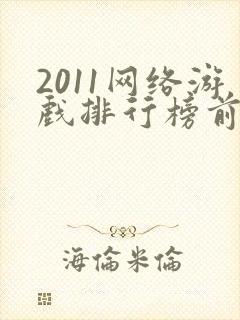 2011网络游
戏排行榜前
海倫米倫